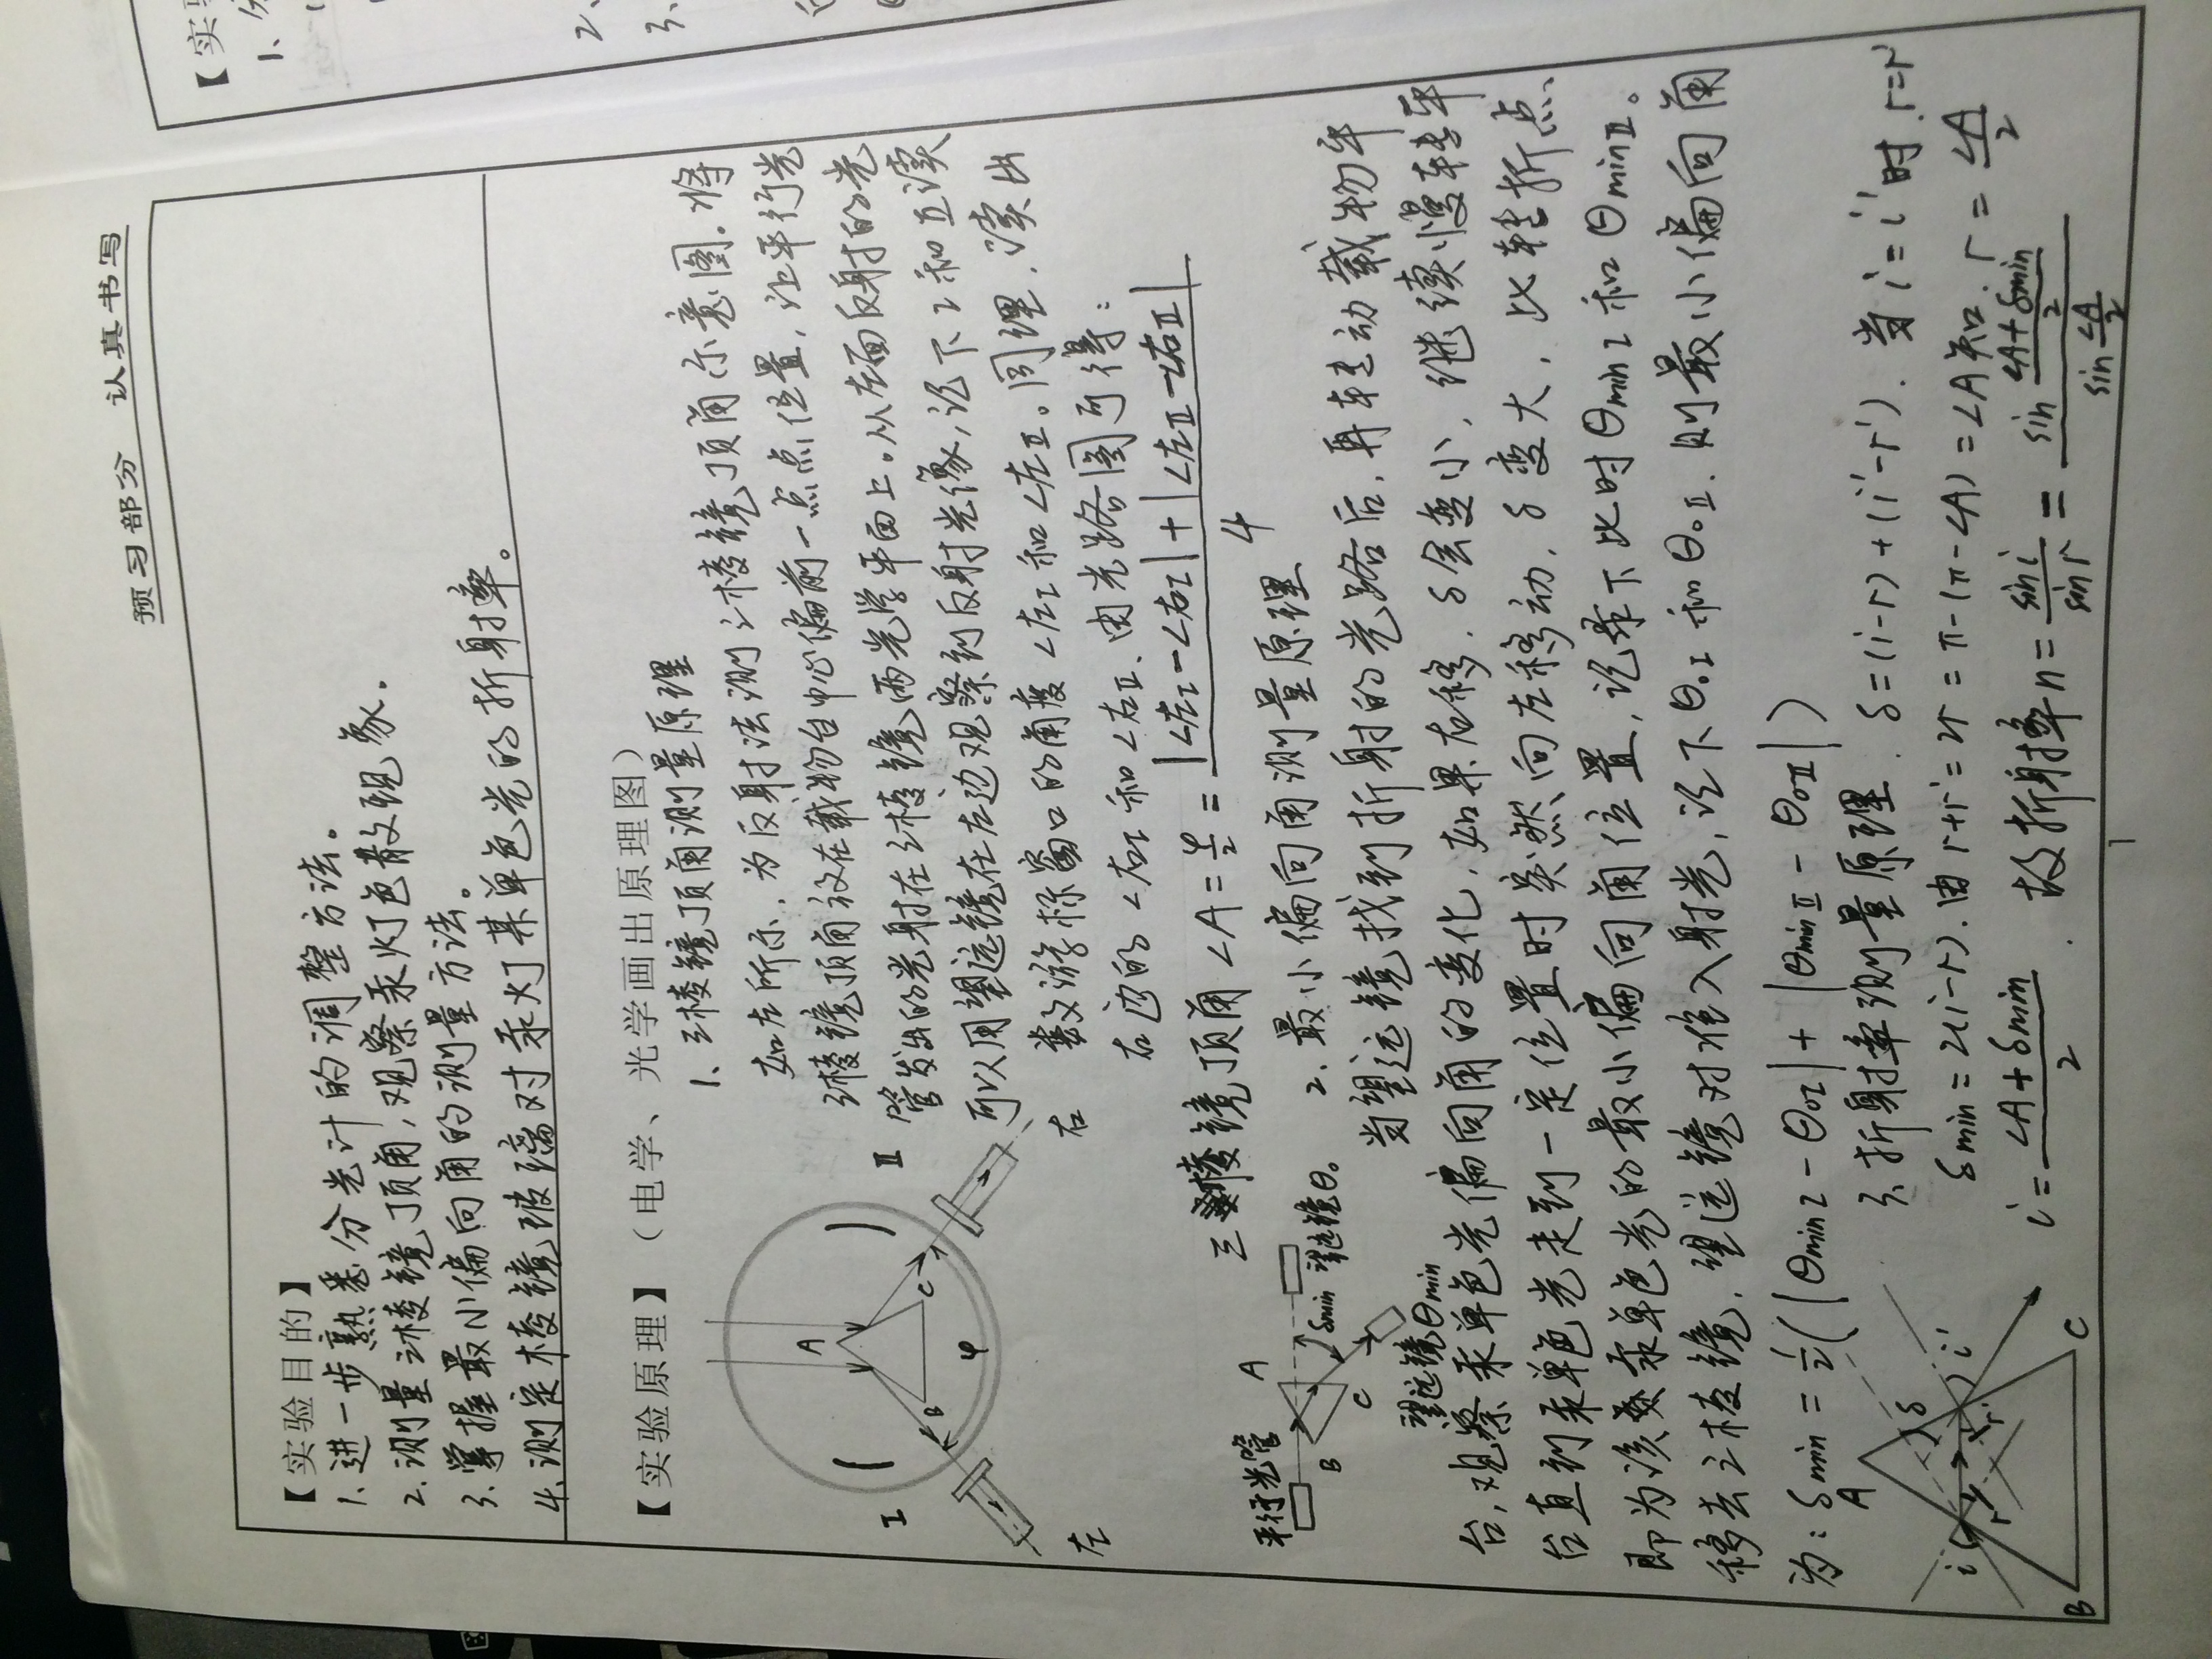 预习部分 认真书写
【实验目的】
1、进一步熟悉分光计的调整方法。
2、测量三棱镜顶角,观察汞灯色散现象。
3、掌握最小偏向角的测量方法。
4、测定棱镜玻璃对汞灯某单色光的折射率。
【实验原理】（电学、光学画出原理图）
1、三棱镜顶角测量原理
如左所示,为反射法测三棱镜顶角示意图。将
三棱镜顶角放在载物台中心偏前一点点位置,让平行光
管发出的光射在三棱镜两光学平面上。从左面反射的光
可以用望远镜在左边观察到反射光像,记下I和II读
数游标窗口的角度∠左I和∠左II。同理,读出
右边的∠右I和∠右II.由光路图可得:
A
I
II
B
C
φ
左
右
三棱镜顶角∠A=φ/2=(|∠左I-∠右I|+|∠左II-∠右II|)/4
平行光管
A
B
C
δmin
望远镜θ0
望远镜θmin
2、最小偏向角测量原理
当望远镜找到折射的光路后,再转动载物平
台,观察汞单色光偏向角的变化,如果右移,δ会变小,继续慢转平
台直到汞单色光走到一定位置时突然向左移动,δ变大,此转折点
即为该汞单色光的最小偏向角位置,记录下此时θminI和θminII。
移去三棱镜,望远镜对准入射光,记下θ0I和θ0II.则最小偏向角
为:δmin=1/2(|θminI-θ0I|+|θminII-θ0II|)
3、折射率测量原理.δ=(i-r)+(i'-r').当i=i'时,r=r'
δmin=2(i-r).由r+r'=2r=π-(π-∠A)=∠A知.r=∠A/2
i=(∠A+δmin)/2.故折射率n=sin i/sin r=sin((∠A+δmin)/2)/sin(∠A/2)
A
δ
i
i'
r
r'
B
C
1
【实
1、
2、
3、